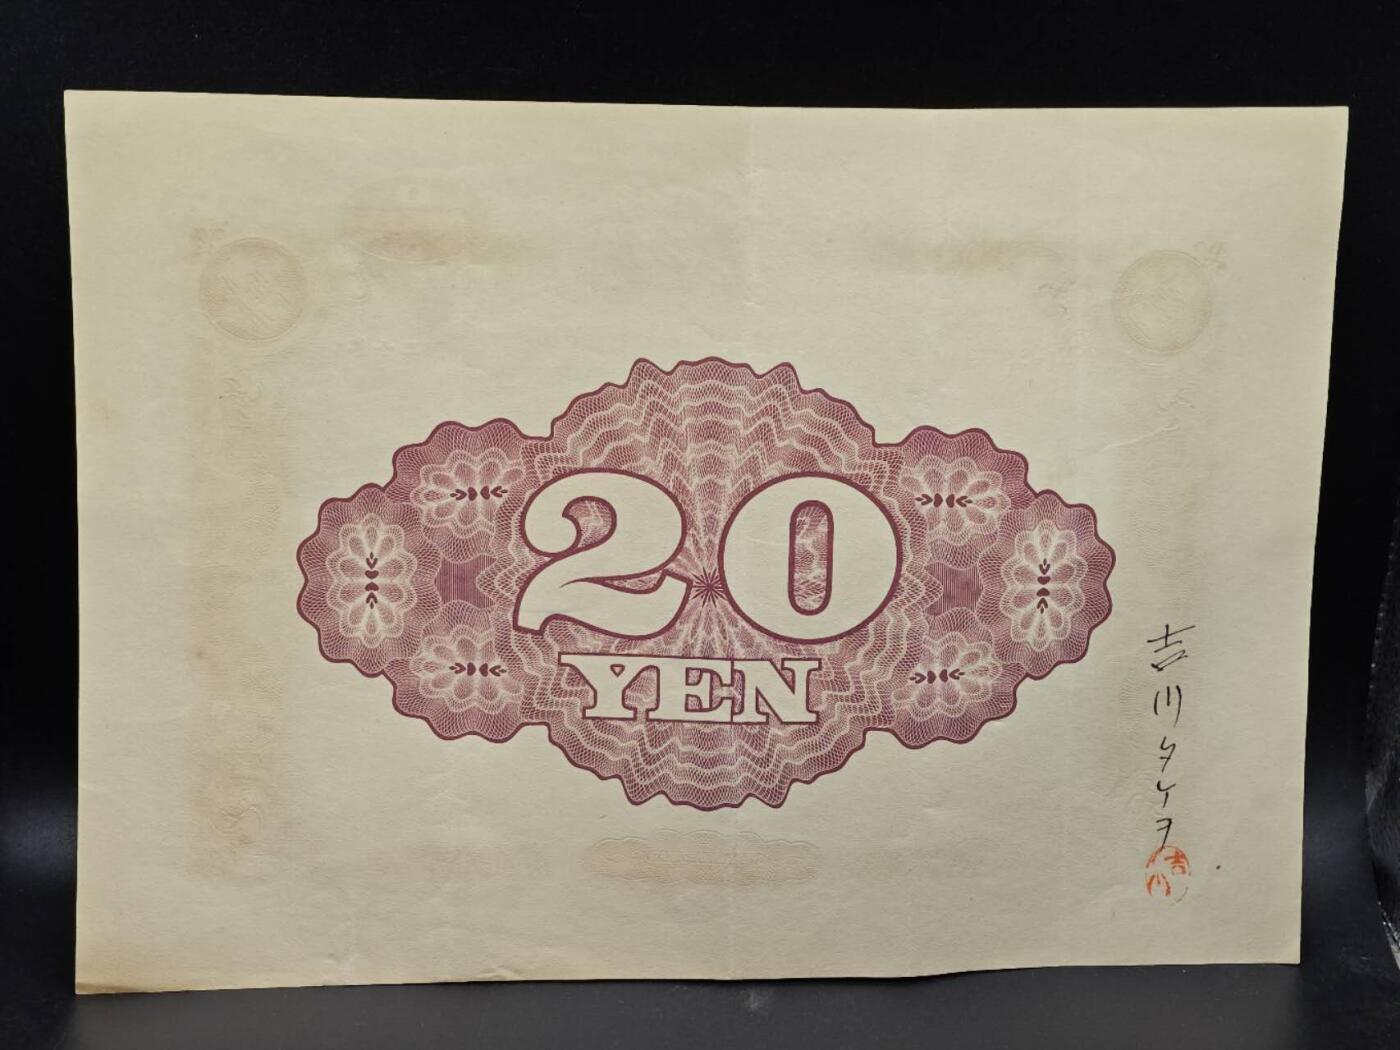 20
YEN
吉川タケヲ
吉川